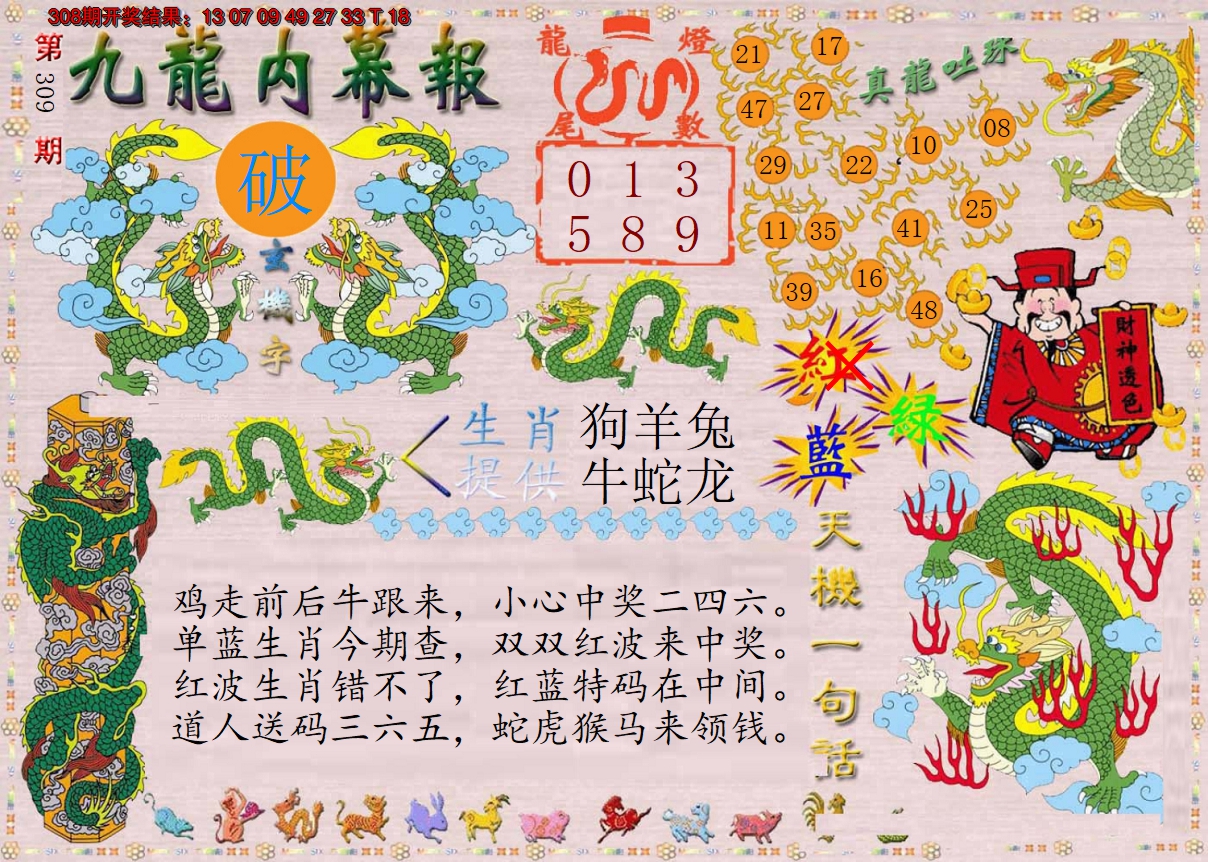 308期开奖结果：13 07 09 49 27 33 T 18
第309期
九龍内幕報
破
玄機字
龍燈尾數
0 1 3
5 8 9
真龍吐珠
21
17
47
27
10
08
29
22
25
11
35
41
16
39
48
紅
綠
藍
財神透色
生肖 狗羊兔
提供 牛蛇龙
天機一句话
鸡走前后牛跟来，小心中奖二四六。
单蓝生肖今期查，双双红波来中奖。
红波生肖错不了，红蓝特码在中间。
道人送码三六五，蛇虎猴马来领钱。